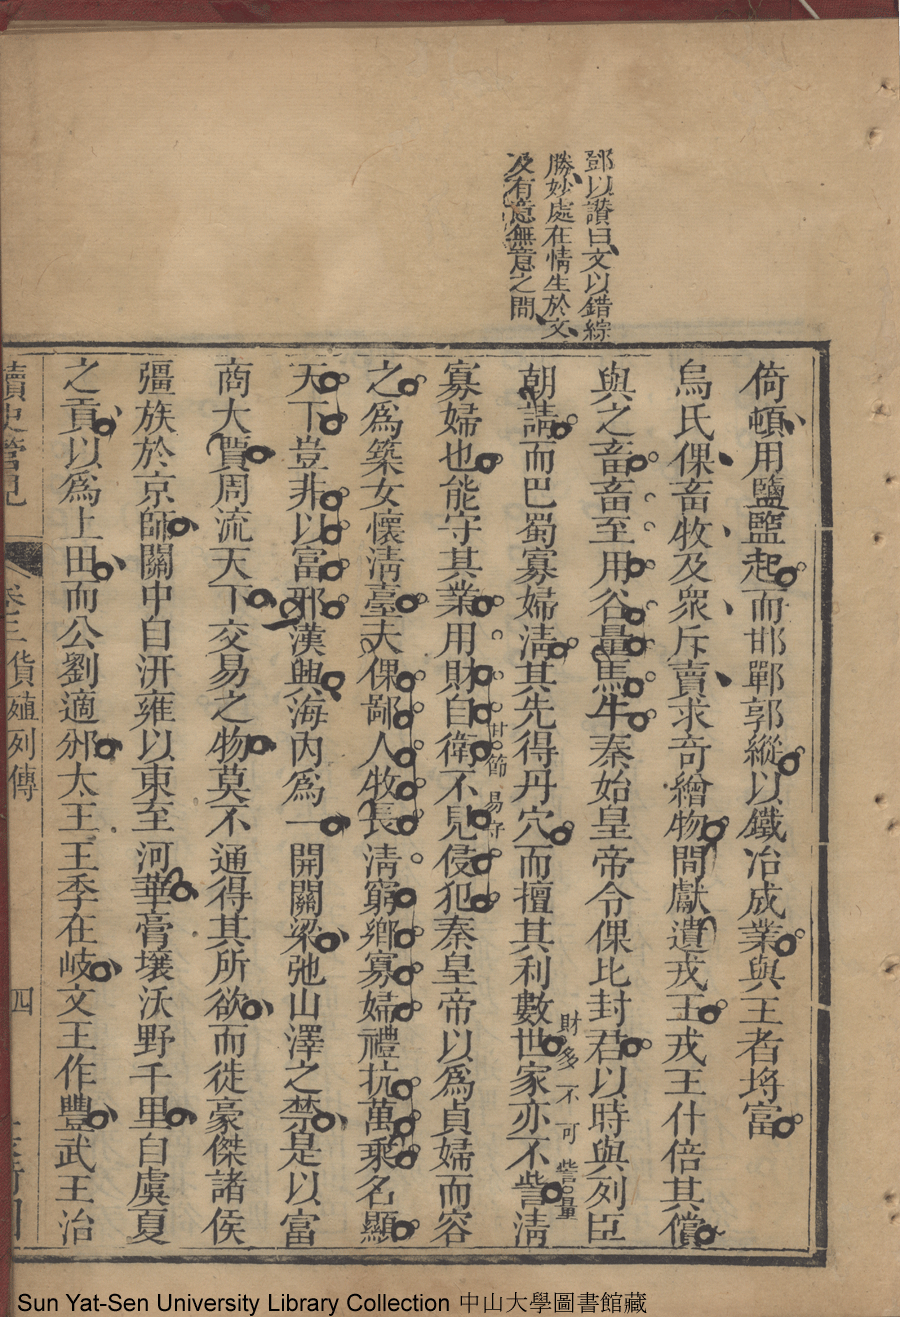 鄧以讃曰文以錯綜
勝妙處在情生於文
及有意無意之間
倚頓用鹽鹽起而邯鄲郭縱以鐵冶成業與王者埒富
烏氏倮畜牧及衆斥賣求奇繒物間獻遺戎王戎王什倍其償
與之畜畜至用谷量馬牛秦始皇帝令倮比封君以時與列臣
朝請而巴蜀寡婦淸其先得丹穴而擅其利數世家亦不訾淸
財多不可訾量
寡婦也能守其業用財自衛不見侵犯秦皇帝以爲貞婦而容
甘節易守
之爲築女懷淸臺夫倮鄙人牧長淸窮鄉寡婦禮抗萬乘名顯
天下豈非以富邪漢興海內爲一開關梁弛山澤之禁是以富
商大賈周流天下交易之物莫不通得其所欲而徙豪傑諸侯
彊族於京師關中自汧雍以東至河華膏壤沃野千里自虞夏
之貢以爲上田而公劉適邠太王王季在岐文王作豐武王治
讀史管見
卷三貨殖列傳
四